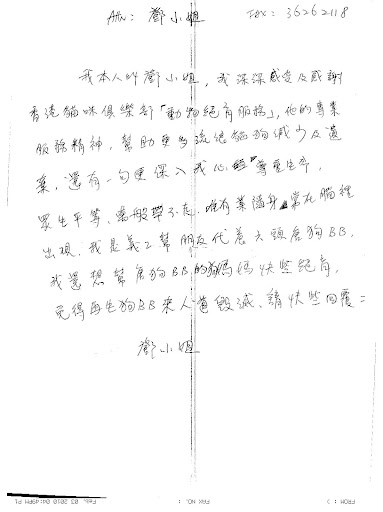 Attn: 鄧小姐 Fax: 36262118
我本人叫鄧小姐，我深深感受及感謝
香港貓咪俱樂部「動物絕育服務」，他的專業
服務精神，幫助更多流浪貓狗減少及遺
棄，還有一句更深入我心 尊重生命，
眾生平等、萬般帶不走、唯有業隨身 常在腦裡
出現，我是義工幫朋友代養六頭唐狗BB,
我還想幫唐狗BB的狗媽媽快些絕育，
免得再生狗BB來人道毀滅、請快些回覆：
鄧小姐
FROM : )
FAX NO. :
Feb. 03 2010 04:49PM P1